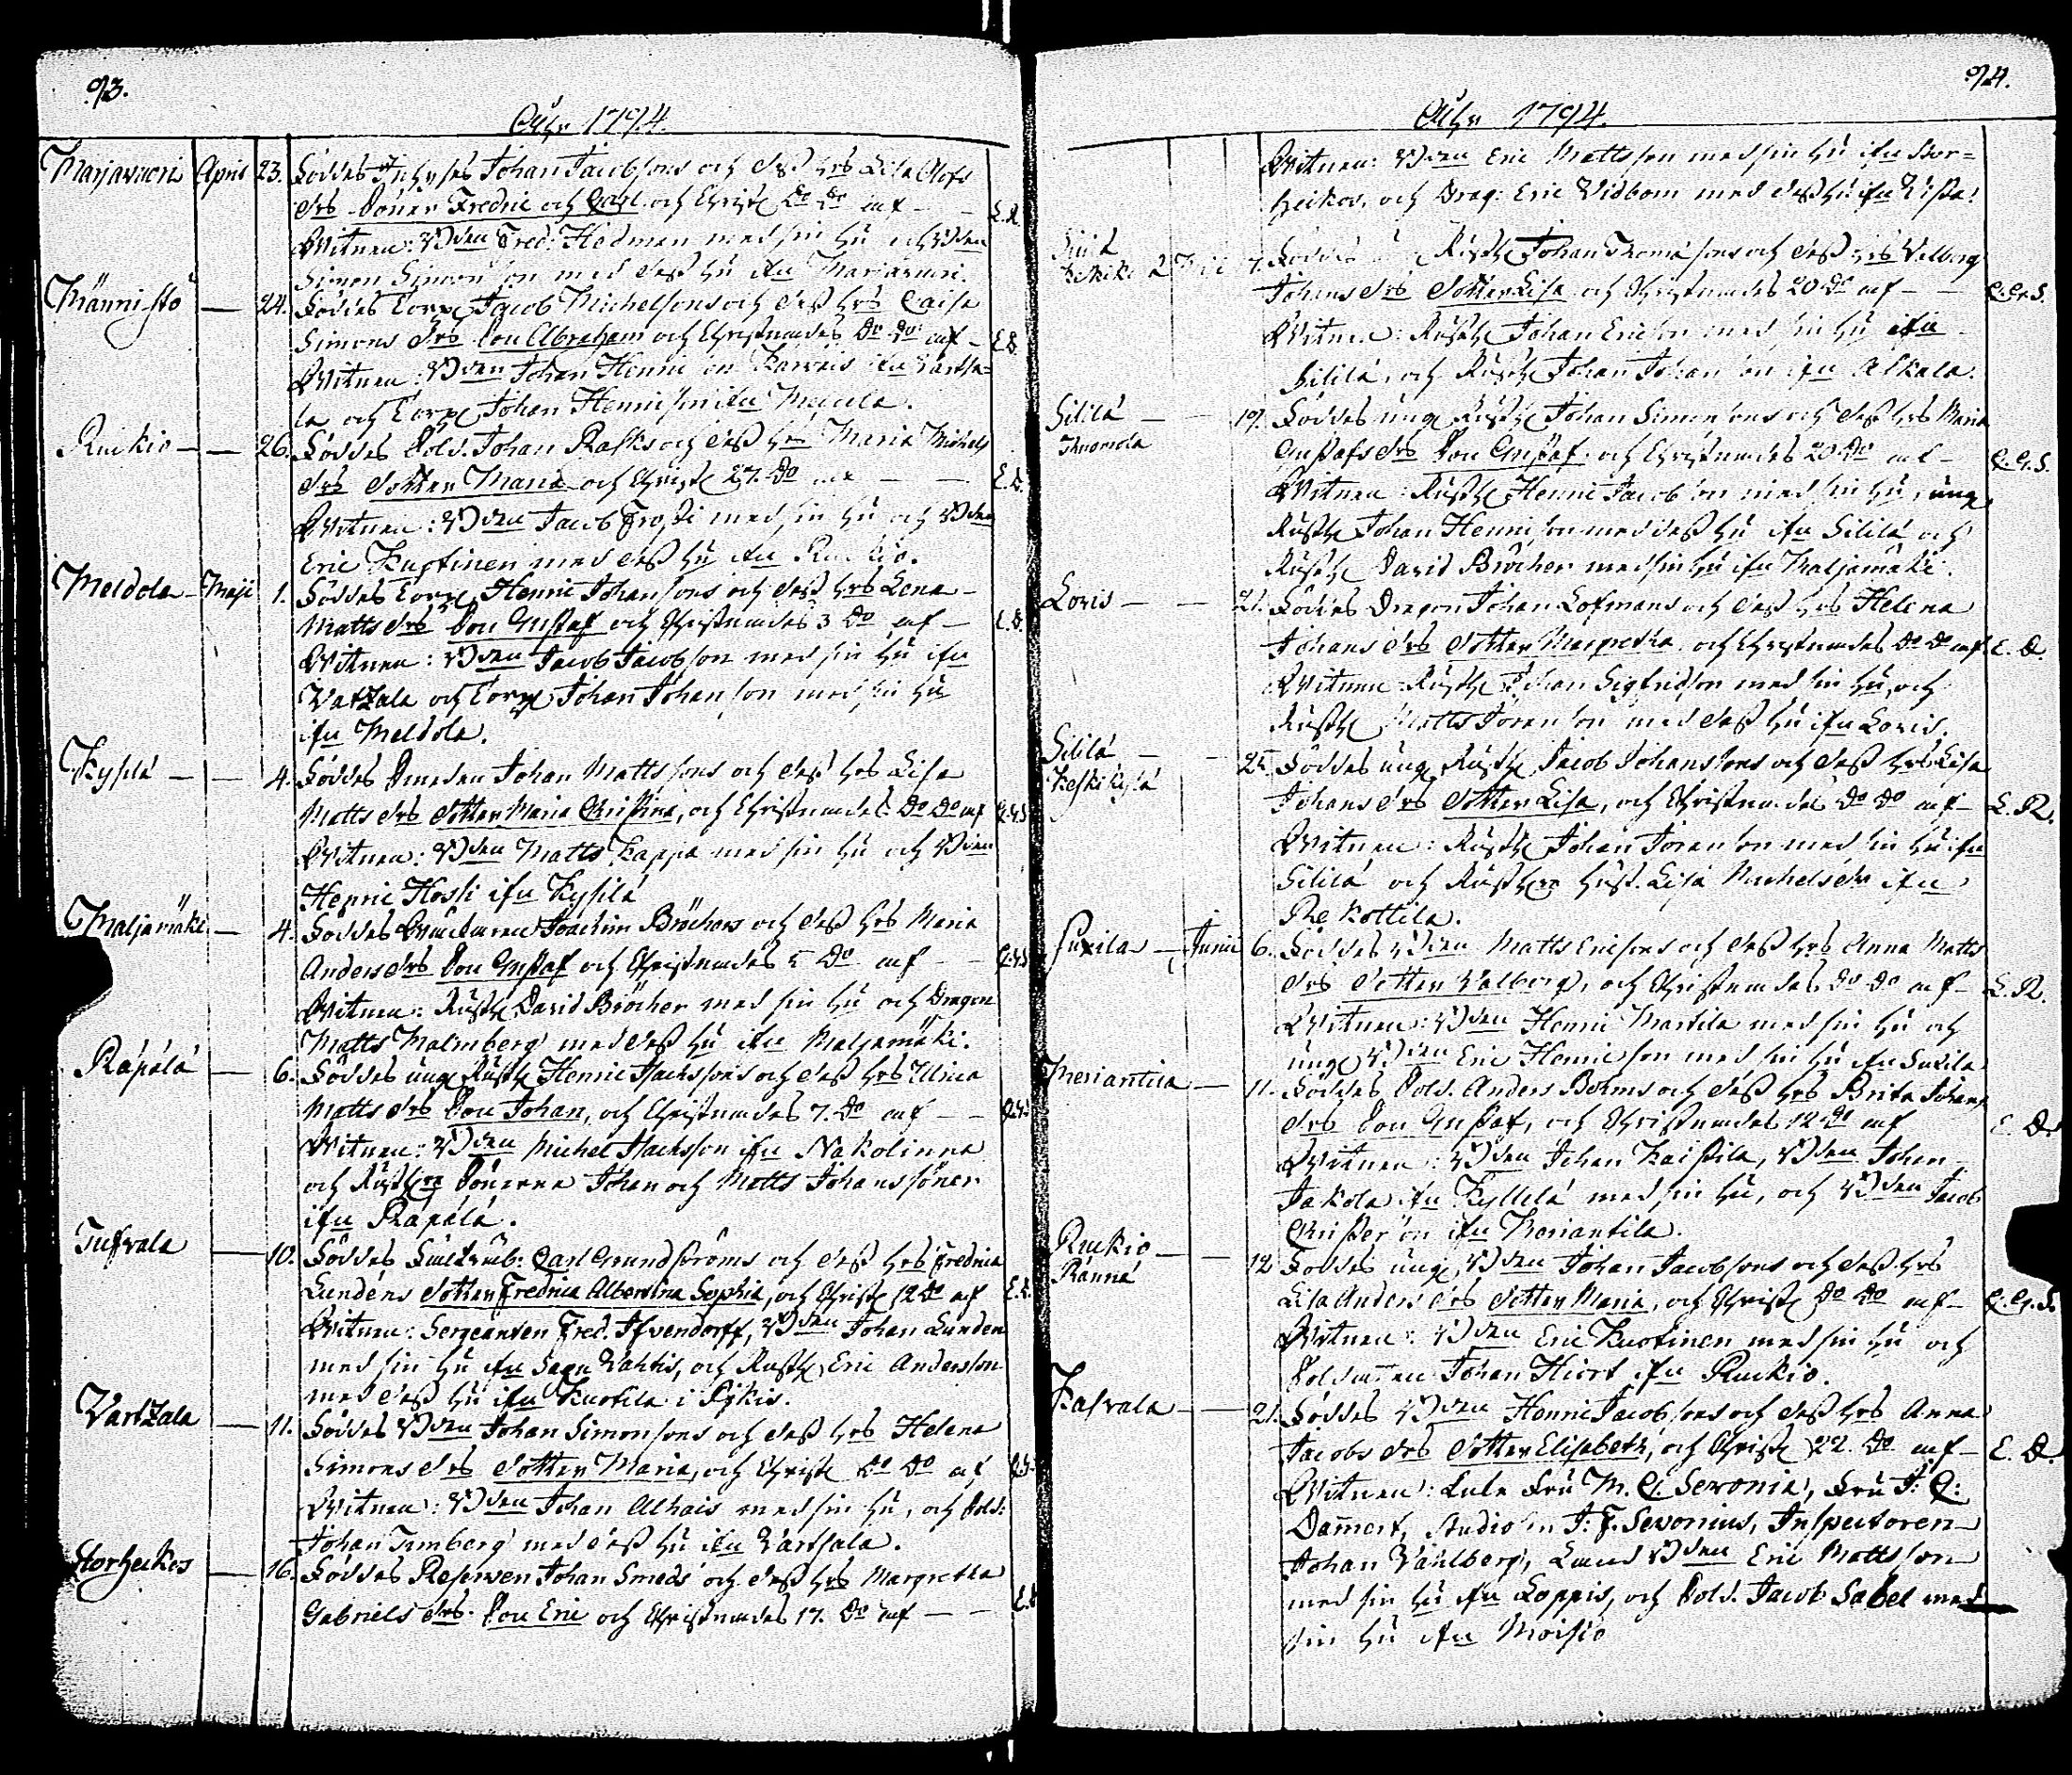 93.
Åhr 1794.
Marjavuori April 23. Föddes Inhyses Johan Jacobssons och dess hus Lisa Olofs
drs Söner Fredric och Carl och Christ. Do Do af — — E.R
Witnen: Bonden Fred: Hedman med sin hu och Bonden
Simon Simonsson med dess hu ifrn Marjavuori.
Männistö — 24. Föddes Torp. Jacob Michelsons och dess hus Caisa
Simons drs Son Abraham och Christnades Do Do af — E.D.
Witnen: Bonden Johan Henricsson Karvais ifrn Vartsa=
la och Torp. Johan Henricsson ifrn Mejeila.
Ruckio — — 26. Föddes Sold. Johan Rasks och dess hus Maria Michels
drs dotter Maria och Christ. 27. Do af — — E.D.
Witnen: Bonden Jacob Frosti med sin hu och Bonden
Eric Kustinen med dess hu ifrn Ruckio.
Meldola — Maji 1. Föddes Torp. Henric Johanssons och dess hus Lena
Matts drs Son Gustaf och Christnades 3 Do af — E.D.
Witnen: Bonden Jacob Jacobsson med sin hu ifrn
Vartzala och Torp. Johan Johansson med sin hu
ifrn Meldola.
Kysilä — — 4. Föddes Johan Mattssons och dess hus Lisa
Matts drs dotter Maria Christina, och Christnades Do Do af C.G.S
Witnen: Bonden Matts Kappa med sin hu och Bonden
Henric Hossi ifrn Kysilä
Maljamäki — 4. Föddes Joachim Bröchers och dess hus Maria
Anders drs Son Gustaf och Christnades 5 Do af — — C.G.S
Witnen: Rusth. David Bröcher med sin hu och Dragon
Matts Malmberg med dess hu ifrn Maljamäki.
Räpälä — 6. Föddes unge Rusth. Henric Isacssons och dess hus Ulrica
Matts drs Son Johan, och Christnades 7. Do af — — C.G.S
Witnen: Bonden Michel Isacsson ifrn Nakolinna
och Rusth. Sönerna Johan och Matts Johanssöner
ifrn Räpälä.
Tuffvala — 10. Föddes Carl Grundströms och dess hus Fredrica
Lundéns dotter Fredrica Albertina Sophia, och Christ. 12 Do af E.R.
Witnen: Sergeanten Fred. Ifvendorff, Bonden Johan Lunden
med sin hu ifrn Sagu Vahtis, och Rusth. Eric Andersson
med dess hu ifrn Kuotila i Pikis.
Vartzala — 11. Föddes Bonden Johan Simonssons och dess hus Helena
Simons drs dotter Maria, och Christ. Do Do af C.G.S
Witnen: Bonden Johan Alhais med sin hu, och Sold:
Johan Timberg med dess hu ifrn Vartsala.
Storheikos — 16. Föddes Reserven Johan Smeds och dess hus Margretha
Gabriels drs. Son Eric och Christnades 17. Do af — — E.D
94.
Åhr 1794.
Witnen: Bonden Eric Mattsson med sin hu ifrn Stor=
heikos, och Drag: Eric Vidbom med dess hu ifrn
7. Föddes Rusth. Johan Thomassons och dess hus Valborg
Johans drs dotter Lisa och Christnades 20 Do af — — C.G.S.
Witnen: Rusth. Johan Ericsson med sin hu ifrn
Sililä, och Rusth. Johan Johansson ifrn Alkala.
Sililä — — 19. Föddes ung Rusth. Johan Simonssons och dess hus Maria
Thuomola
Gustafs drs Son Gustaf och Christnades 20 Do af — C.G.S.
Witnen: Rusth. Henric Jacobsson med sin hu, unge
Rusth. Johan Henricsson med dess hu ifrn Sililä och
Rusth. David Bröcher med sin hu ifrn Maljamäki.
Lovis — — 21. Föddes Dragon Johan Lofmans och dess hus Helena
Johans drs dotter Margretha och Christnades Do Do af E.D.
Witnen Rusth. Johan Sigfridsson med sin hu, och
Rusth. Matts Joransson med dess hu ifrn Lovis.
Sililä — — 25. Föddes ung Rusth. Jacob Johanssons och dess hus Lisa
Keskikylä
Johans drs dotter Lisa, och Christnades Do Do af — E.R.
Witnen: Rusth. Johan Joransson med sin hu ifrn
Sililä och Rusth. hust. Lisa Michelsdr ifrn
Rekottila.
Suxila — Junii 6. Föddes Bonden Matts Ericsons och dess hus Anna Matts
drs dotter Valborg, och Christnades Do Do af — E.R.
Witnen: Bonden Henric Martila med sin hu och
unge Bonden Eric Henricsson med sin hu ifrn Suxila
Meriantila — 11. Föddes Sold. Anders Bohms och dess hus Brita Johans
drs Son Gustaf, och Christnades 12 Do af E.D.
Witnen: Bonden Johan Kaistila, Bonden Johan
Jakola ifrn Kyllilä med sin hu, och Bonden Jacob
Christersson ifrn Meriantila.
Ruckio — — 12 Föddes unge Bonden Johan Jacobssons och dess hus
Ranná
Lisa Anders drs dotter Maria, och Christ. Do Do af — C.G.S.
Witnen: Bonden Eric Kustinen med sin hu och
Soldaten Johan Hiort ifrn Ruckio.
Kasvala — — 21. Föddes Bonden Henric Jacobssons och dess hus Anna
Jacobs drs dotter Elisabeth, och Christ. 22 Do af — E.D.
Witnen: Enke Fru M. C. Sevonia, Fru J: C:
Dam̄ert, Studiosen J. F. Sevonius, Inspectoren
Johan Vahlberg, Bonden Eric Mattsson
med sin hu ifrn Loppis, och Sold. Jacob Sabel med
sin hu ifrn Moisio